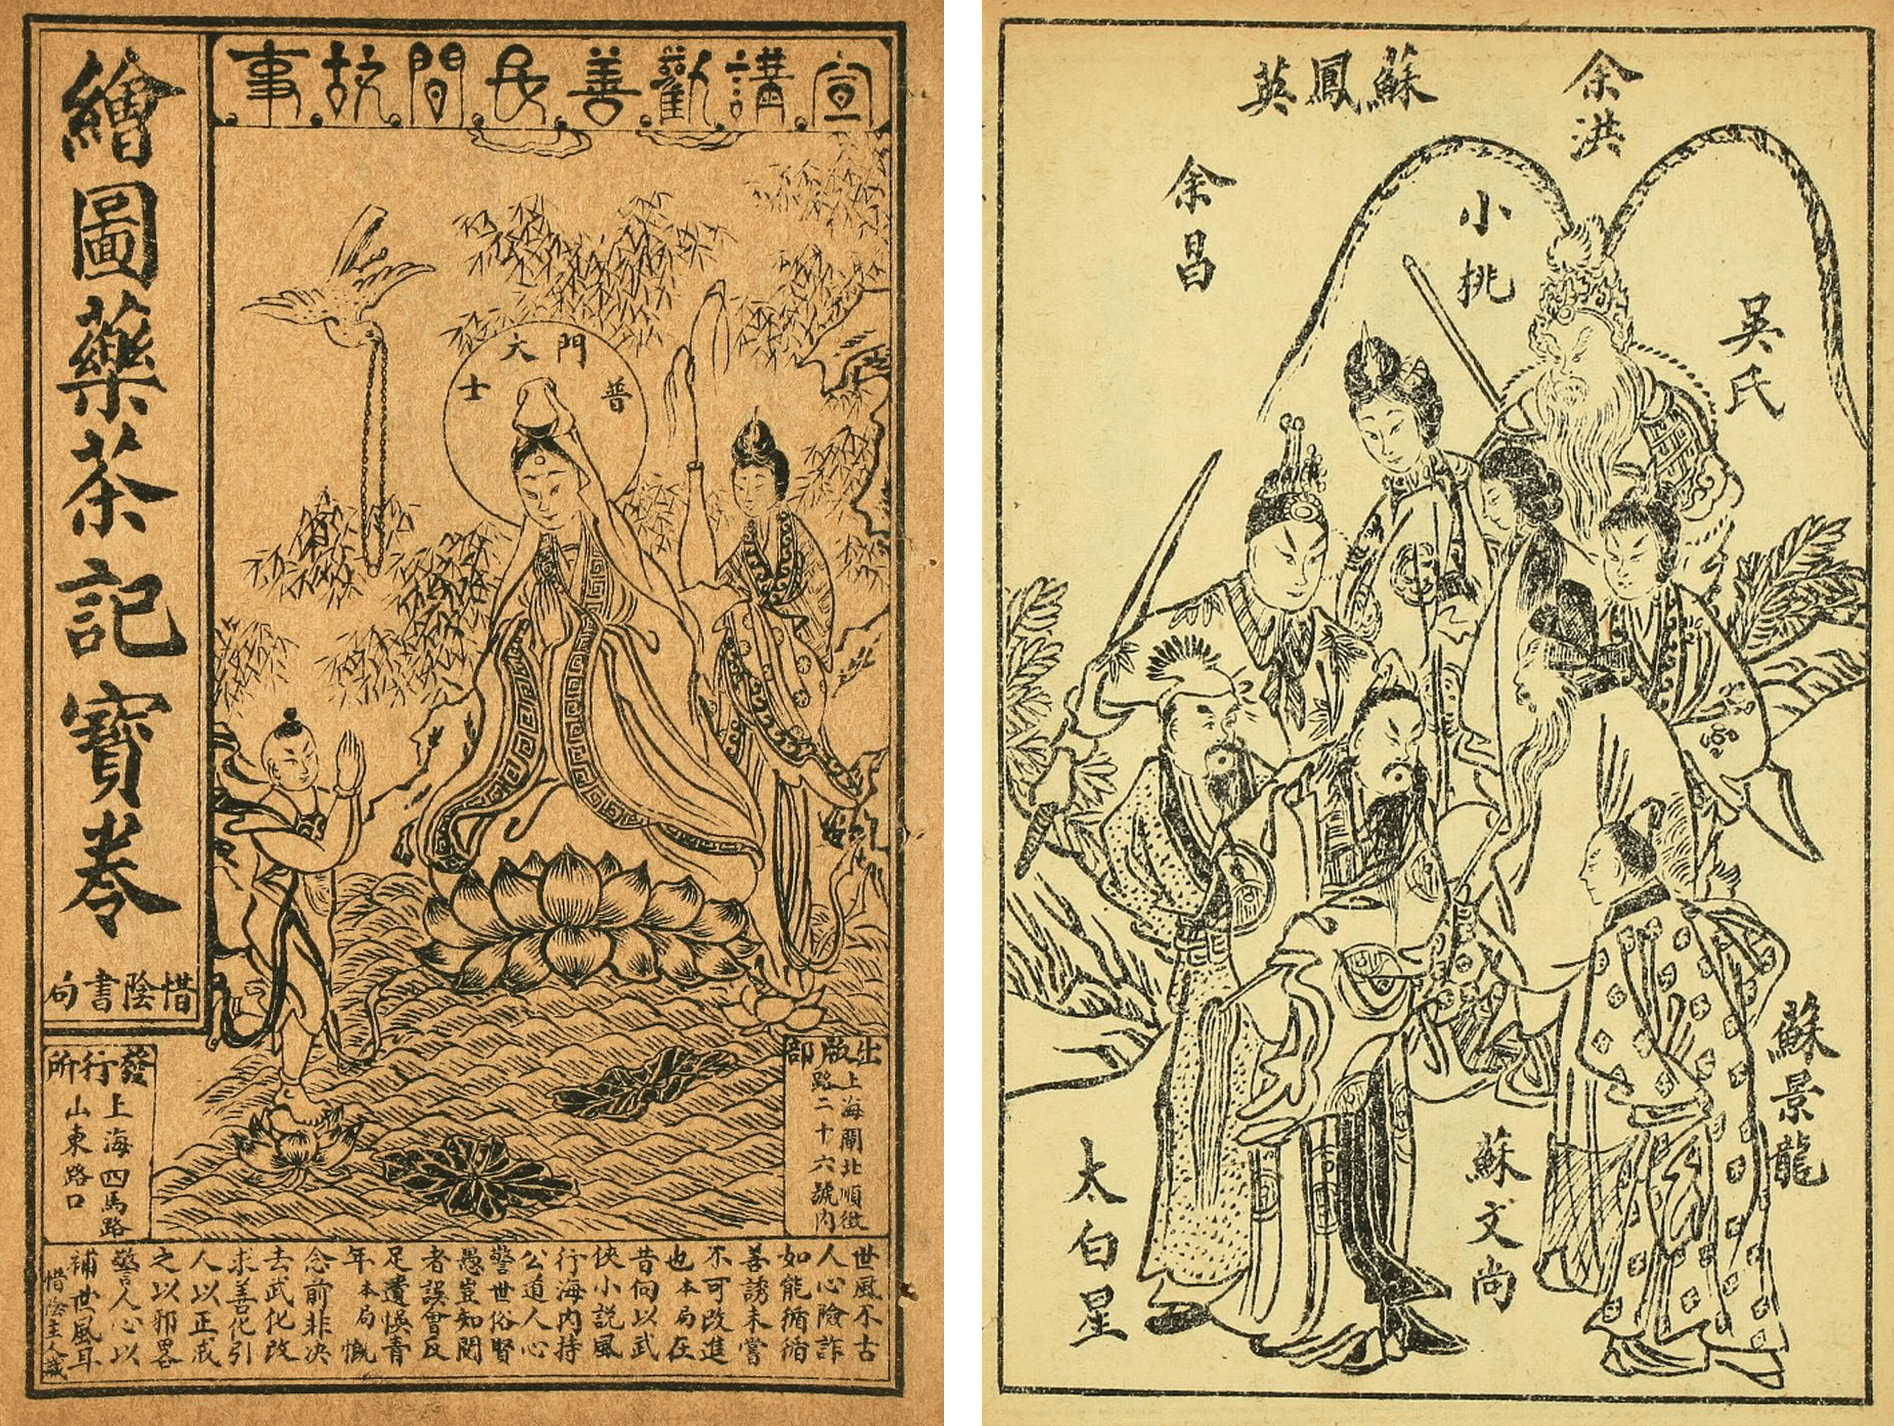 宣講勸善民間故事
繪圖藥茶記寶卷
惜陰書局
普門大士
發行所
上海四馬路
山東路口
出版部
上海閘北順徵
路二十六號內
世風不古
人心險詐
如能循循
善誘未嘗
不可改進
也本局在
昔向以武
俠小說風
行海內持
公道人心
警世俗賢
愚豈知閱
者誤會反
足遺悞青
年本局慨
念前非决
去武化改
求善化引
人以正戒
之以邪畧
警人心以
補世風耳
惜陰主人識
余洪
蘇鳳英
余昌
小桃
吳氏
蘇景龍
蘇文尚
太白星